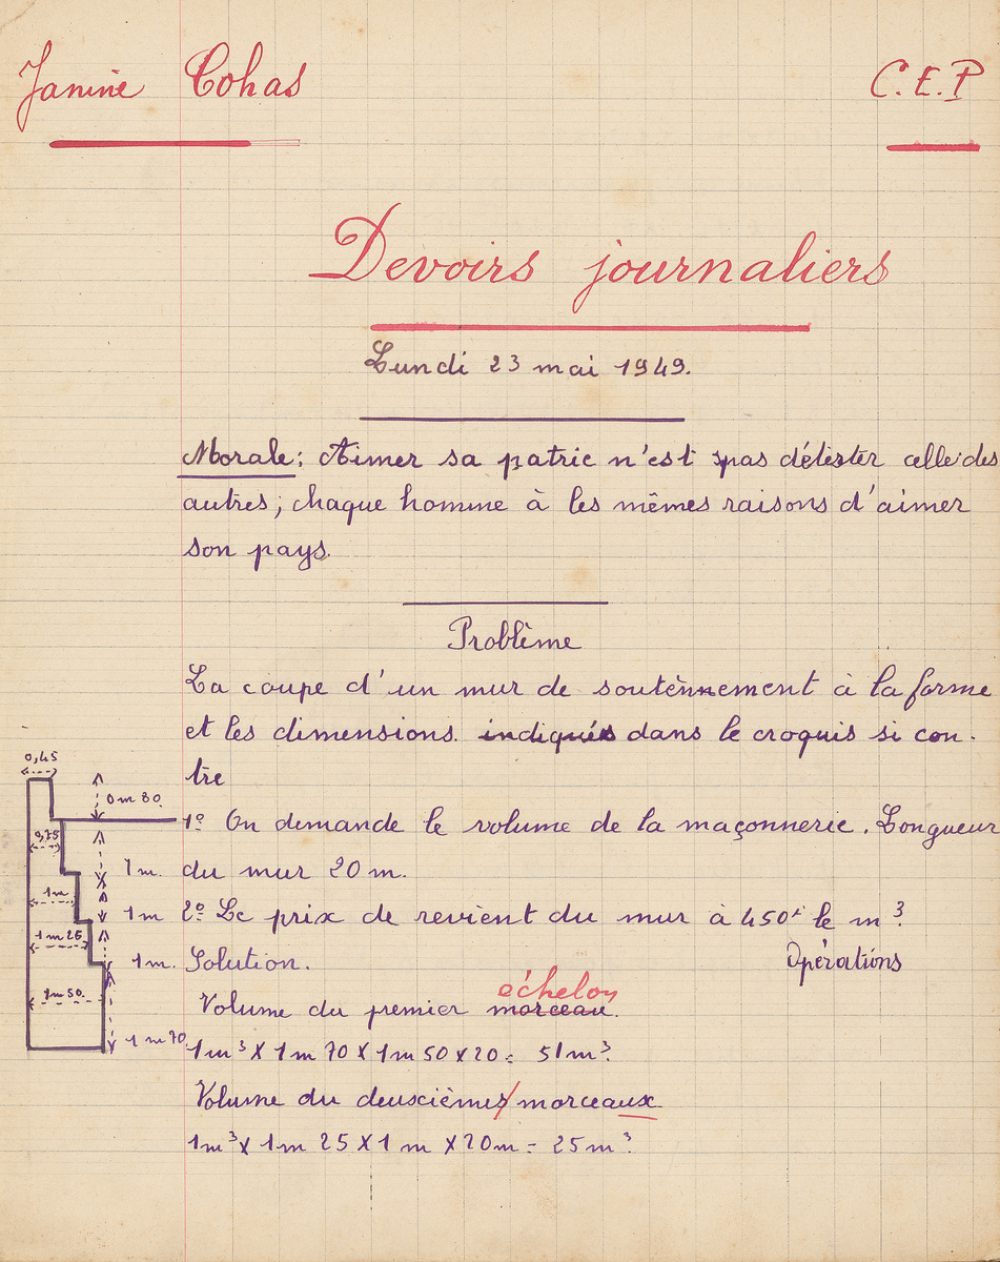 Janine Cohas
C.E.P
Devoirs journaliers
Lundi 23 mai 1949.
Morale: Aimer sa patrie n'est pas détester celle des
autres; chaque homme à les mêmes raisons d'aimer
son pays.
Problème
La coupe d'un mur de soutènnement à la forme
et les dimensions. indiqués dans le croquis si con.
tre
1º On demande le volume de la maçonnerie. Longueur
du mur 20 m.
2º Le prix de revient du mur à 450f le m³.
Solution.
Opérations
échelon
Volume du premier morceau.
1m³ X 1m 70 X 1m 50 X 20 = 51m³.
Volume du deuxièmes morceaux
1m³ X 1m 25 X 1m X 20m = 25m³.
0,45
0m 80
0,75
1m.
1m
1m
1m 25
1m.
1m 50.
1m 70